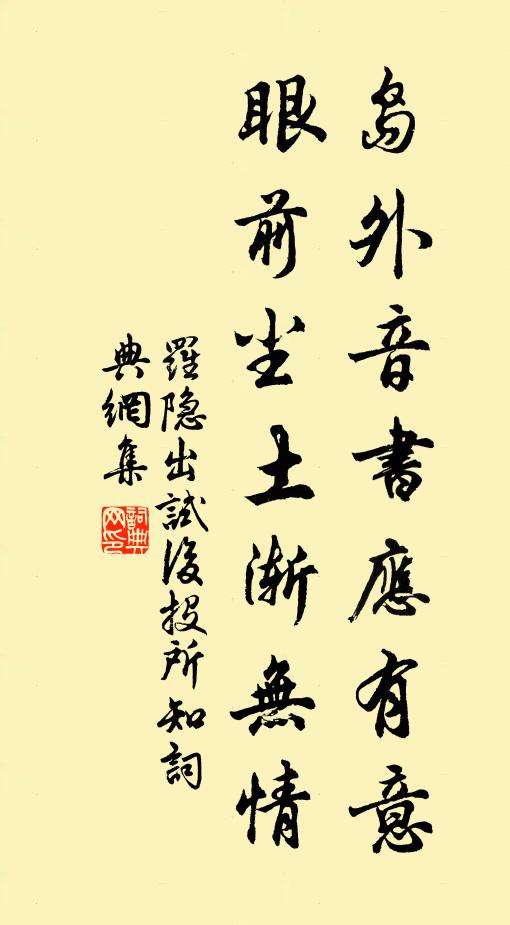 島外音書應有意
眼前尘土漸無情
羅隐出試後投所知詞
典網集
詞典
网印